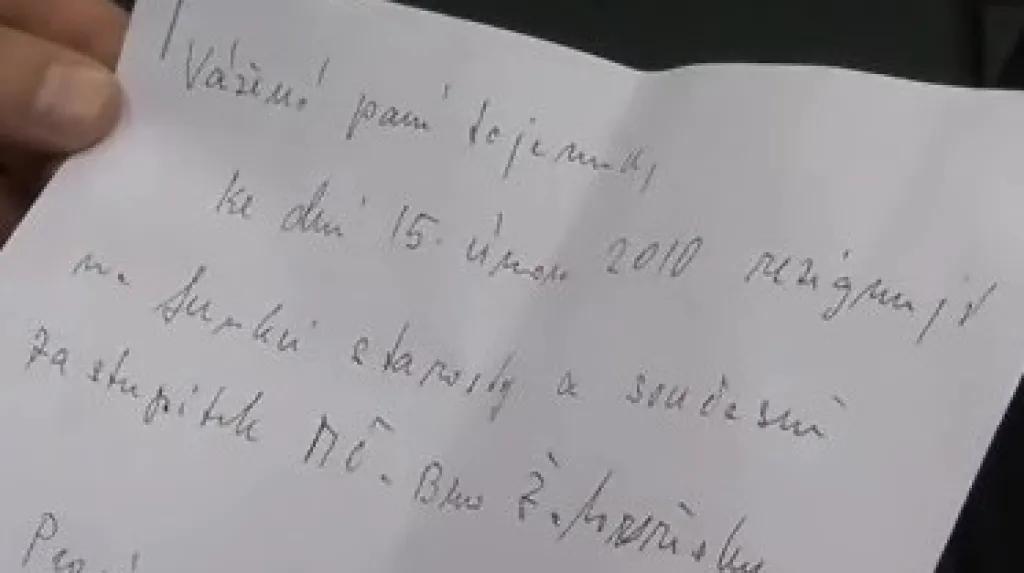 Vážená paní tajemnice,
ke dni 15. února 2010 rezignuji
na funkci starosty a současně
zastupitele MČ. Brno Žabovřesky